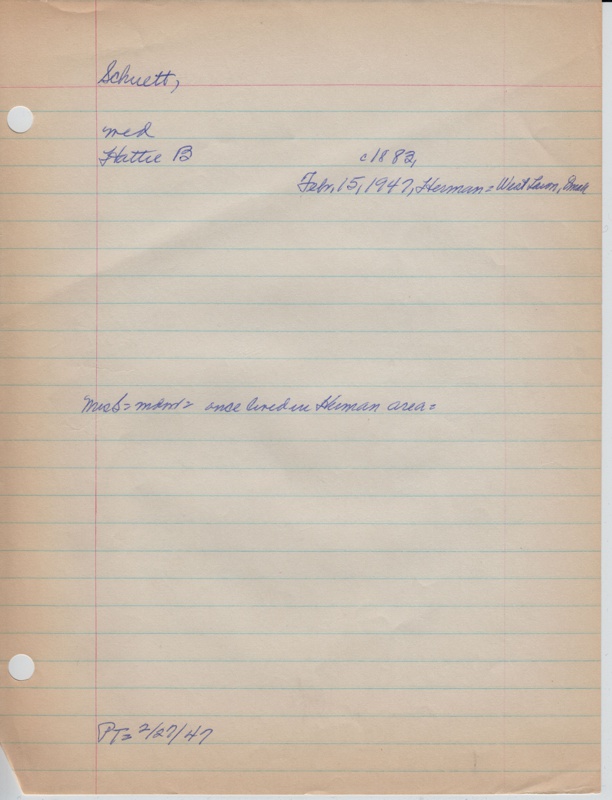 Schuett,
med
Hattie B c1882,
Febr, 15, 1947, Herman = West Lawn, Omaha
once lived in Herman area =
PT = 2/27/47